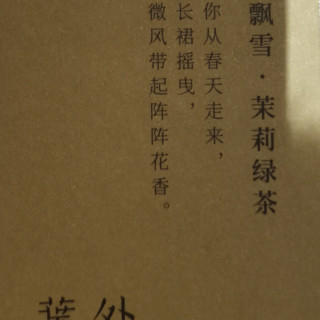 飘雪·茉莉绿茶
你从春天走来，
长裙摇曳，
微风带起阵阵花香。
外